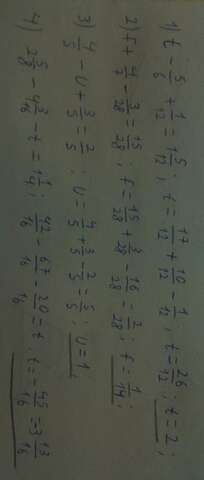 1) t - 5/6 + 1/12 = 1 5/12; t = 17/12 + 10/12 - 1/12; t = 26/12; t = 2;
2) t + 4/7 - 3/28 = 15/28; t = 15/28 + 3/28 - 16/28 = 2/28; t = 1/14;
3) 4/5 - v + 3/5 = 2/5; v = 4/5 + 3/5 - 2/5 = 5/5; v = 1;
4) 2 5/8 - 4 3/16 - t = 1 1/4; 42/16 - 67/16 - 20/16 = t; t = - 45/16 = -3 13/16